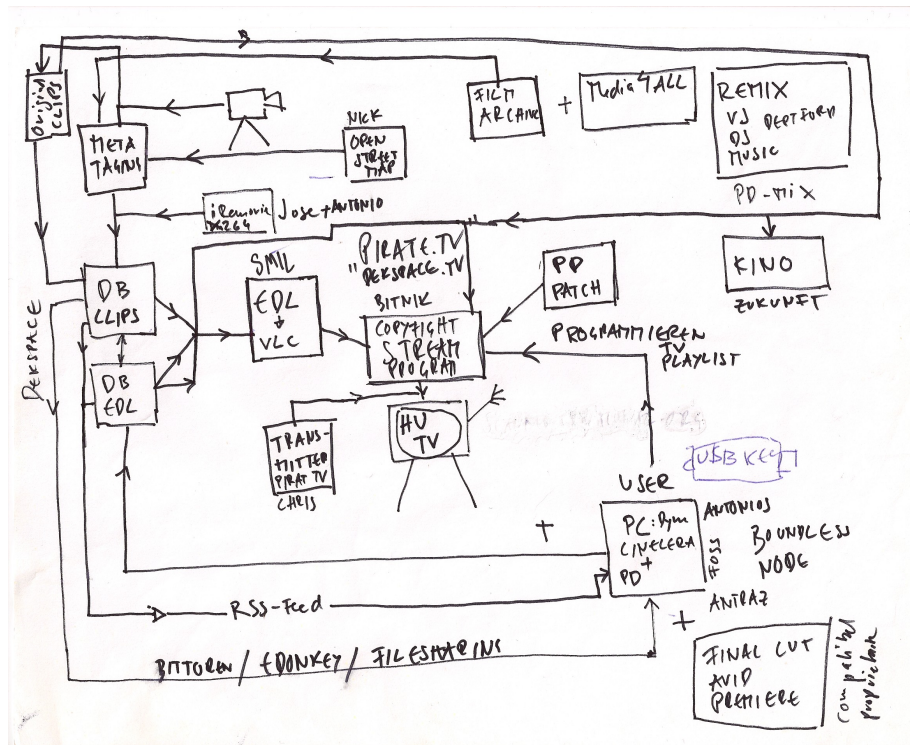 Original
CLIPS
META
TAGINS
NICK
OPEN
STREET
MAP
FILM
ARCHIVE
+
Media4ALL
REMIX
VJ DEPTFORD
DJ
MUSIC
PD-Mix
Jose + ANTONIO
KINO
ZUKUNFT
DEKSPACE
DB
CLIPS
DB
EDL
SMIL
EDL
VLC
PIRATE.TV
" DEKSPACE.TV
BITNIK
COPYFIGHT
STREAM
PROGRAM
PD
PATCH
PROGRAMMIEREN
TV
PLAYLIST
TRANS-
MITTER
PIRAT TV
CHRIS
TV
USB KEY
USER
+
CINELERA
+
PD
FOSS
ANTONIOS
BOUNDLESS
NODE
RSS-Feed
+
BITTOREN / EDONKEY / FILESHARING
FINAL CUT
AVID
PREMIERE